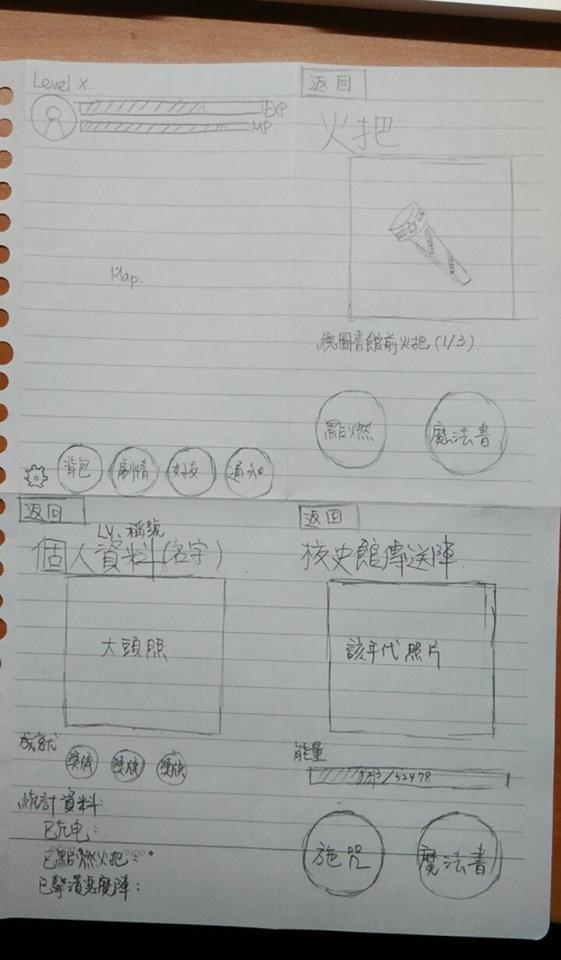 Level x.
EXP
MP
Map.
背包 劇情 好友 通知
返回
火把
總圖書館前火把(1/3)
點燃 魔法書
返回
LV. 稱號
個人資料(名字)
大頭照
成就
獎牌 獎牌 獎牌
統計資料
已充电:
已點燃火把:
已擊潰惡魔陣:
返回
校史館傳送陣
該年代照片
能量
/52478
施咒 魔法書